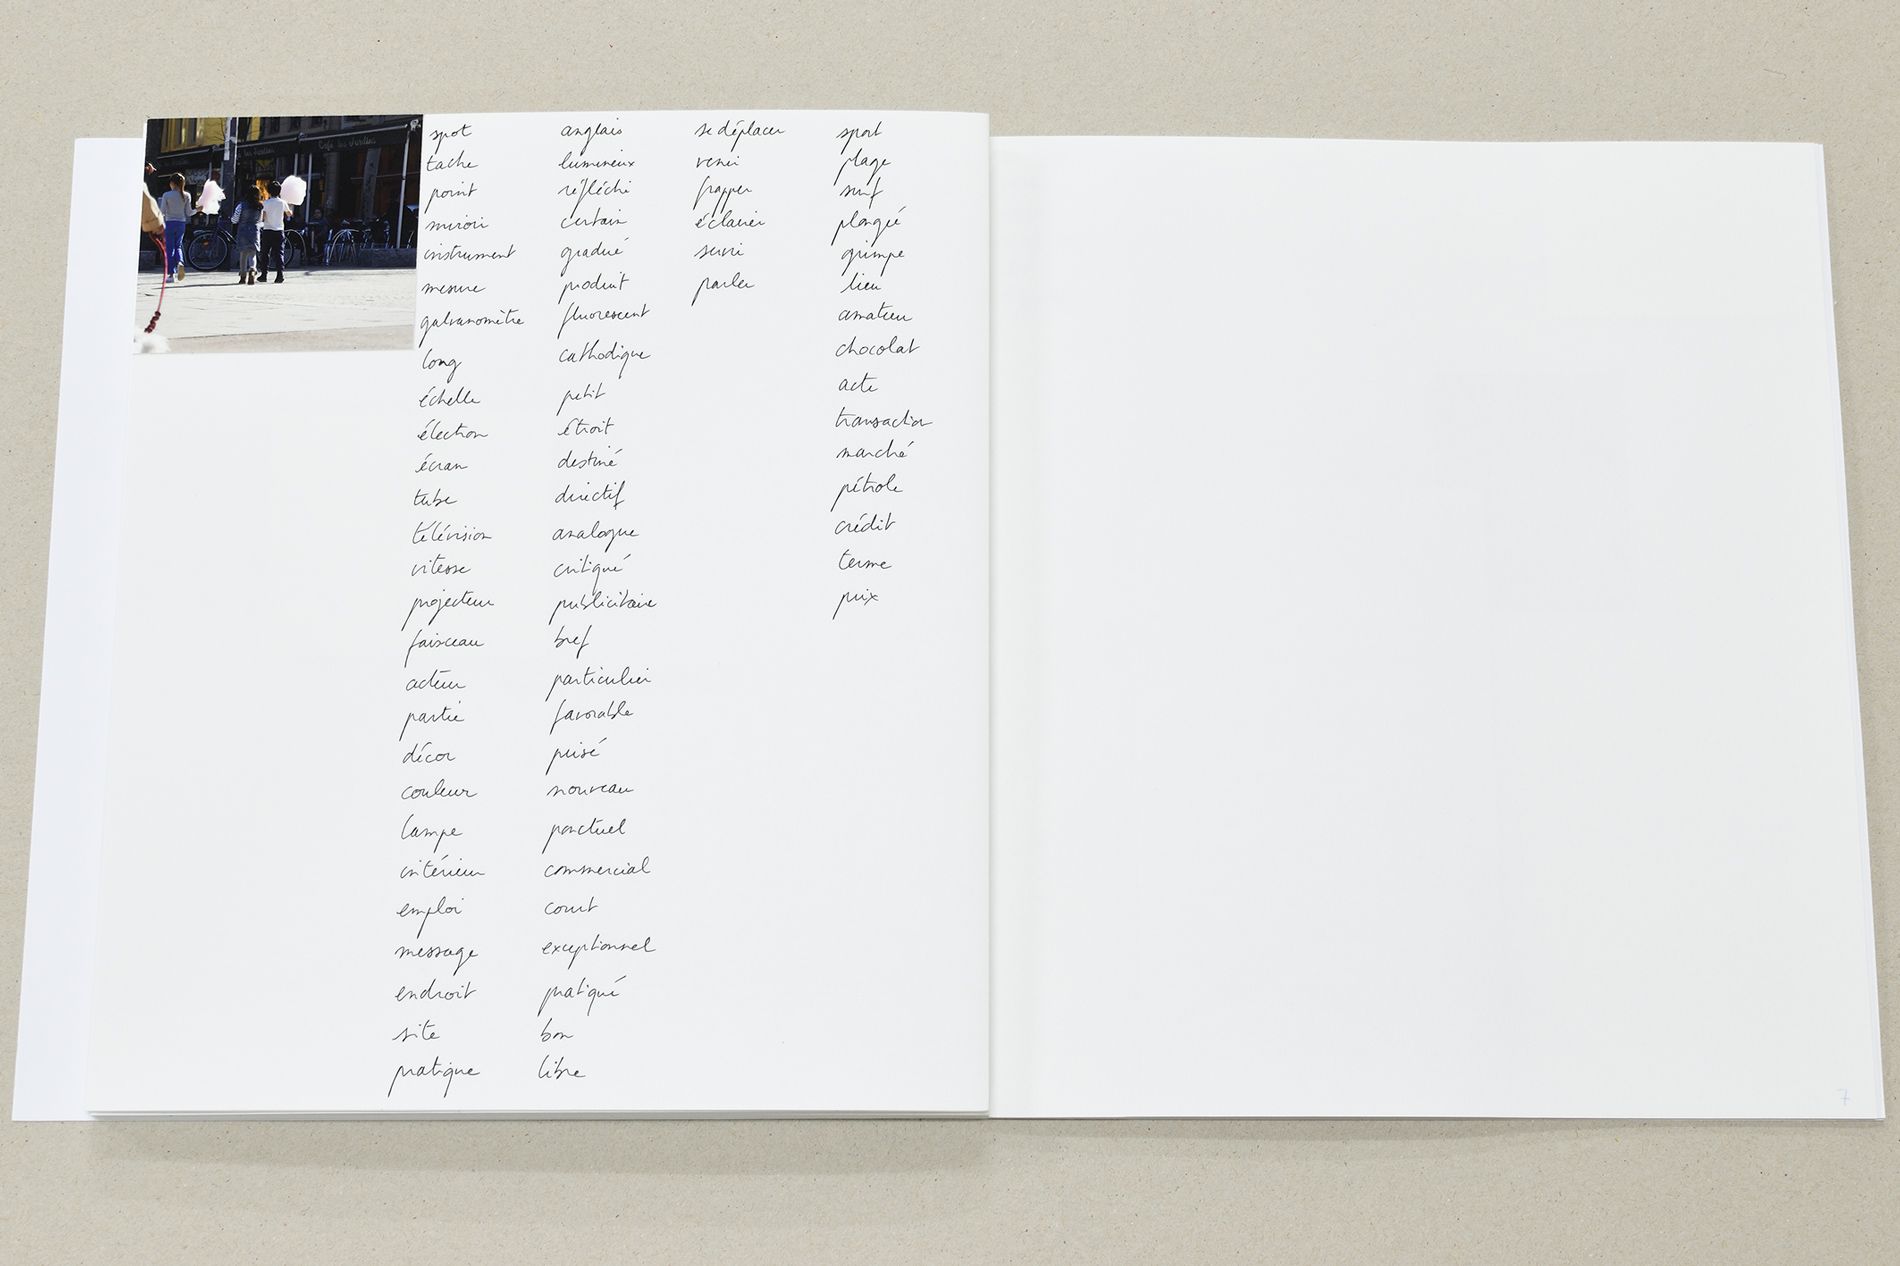 Café les Jardins
spot
tache
point
miroir
instrument
mesure
galvanomètre
long
échelle
électron
écran
tube
télévision
vitesse
projecteur
faisceau
acteur
partie
décor
couleur
lampe
intérieur
emploi
message
endroit
site
pratique
anglais
lumineux
réfléchi
certain
gradué
produit
fluorescent
cathodique
petit
étroit
destiné
directif
analogue
critiqué
publicitaire
bref
particulier
favorable
prisé
nouveau
ponctuel
commercial
court
exceptionnel
pratiqué
bon
libre
se déplacer
venir
frapper
éclairer
servir
parler
sport
plage
surf
plongée
grimpe
lieu
amateur
chocolat
acte
transaction
marché
pétrole
crédit
terme
prix
7